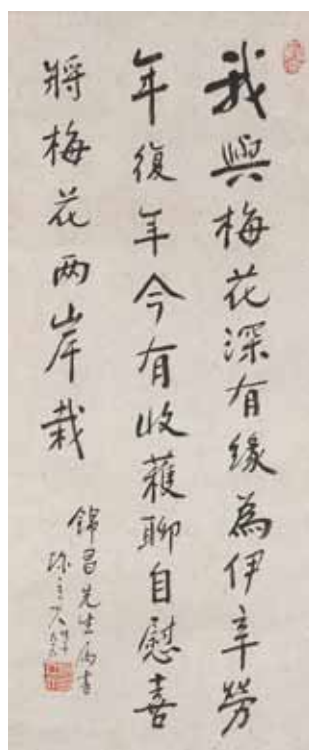 我與梅花深有緣為伊辛勞
年復年今有收穫聊自慰喜
將梅花两岸栽
錦昌先生属書
陳立夫